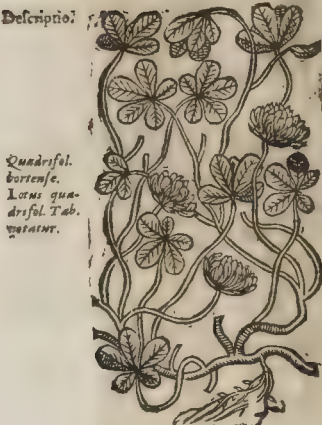 Descriptio.
Quadrifol.
hortense.
Lotus qua-
drifol. Tab.
notatur.